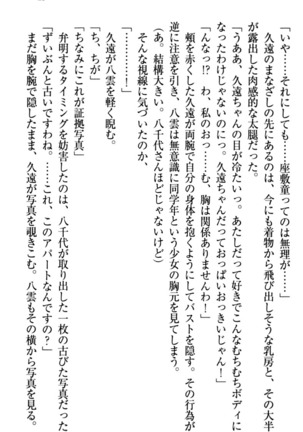 「いや……それにしても……座敷童ってのは、もっとほら……」
久遠のまなざしの先にあるのは、今にも着物から飛び出しそうな乳房と、その大半
が露出した肉感的な太腿だった。
「うああ、久遠ちゃんの目が冷たいっす。あたしだって好きでこんなむちむちボディに
なったわけじゃないのにっ。久遠ちゃんだっておっぱいおっきいじゃん！」
「んなっ!?　わ、私のおっ……む、胸は関係ありませんわ！」
頬を赤くした久遠が両腕で自分の身体を抱くようにしてバストを隠す。その行為が
逆に注意を引き、八雲は無意識に同学年という少女の胸元を見てしまう。
（あ。結構大きい。八千代さんほどじゃないけど）
そんな視線に気づいたのか、
「……！」
久遠が八雲を軽く睨む。
「ち、ちが」
「ちなみにこれが証拠写真」
弁明するタイミングを妨害したのは、八千代が取り出した一枚の古びた写真だった
「ずいぶんと古いですわね。……これ、このアパートなんですの？」
まだ胸を腕で隠したまま、久遠が写真を覗きこむ。八雲もその横から写真を見る。